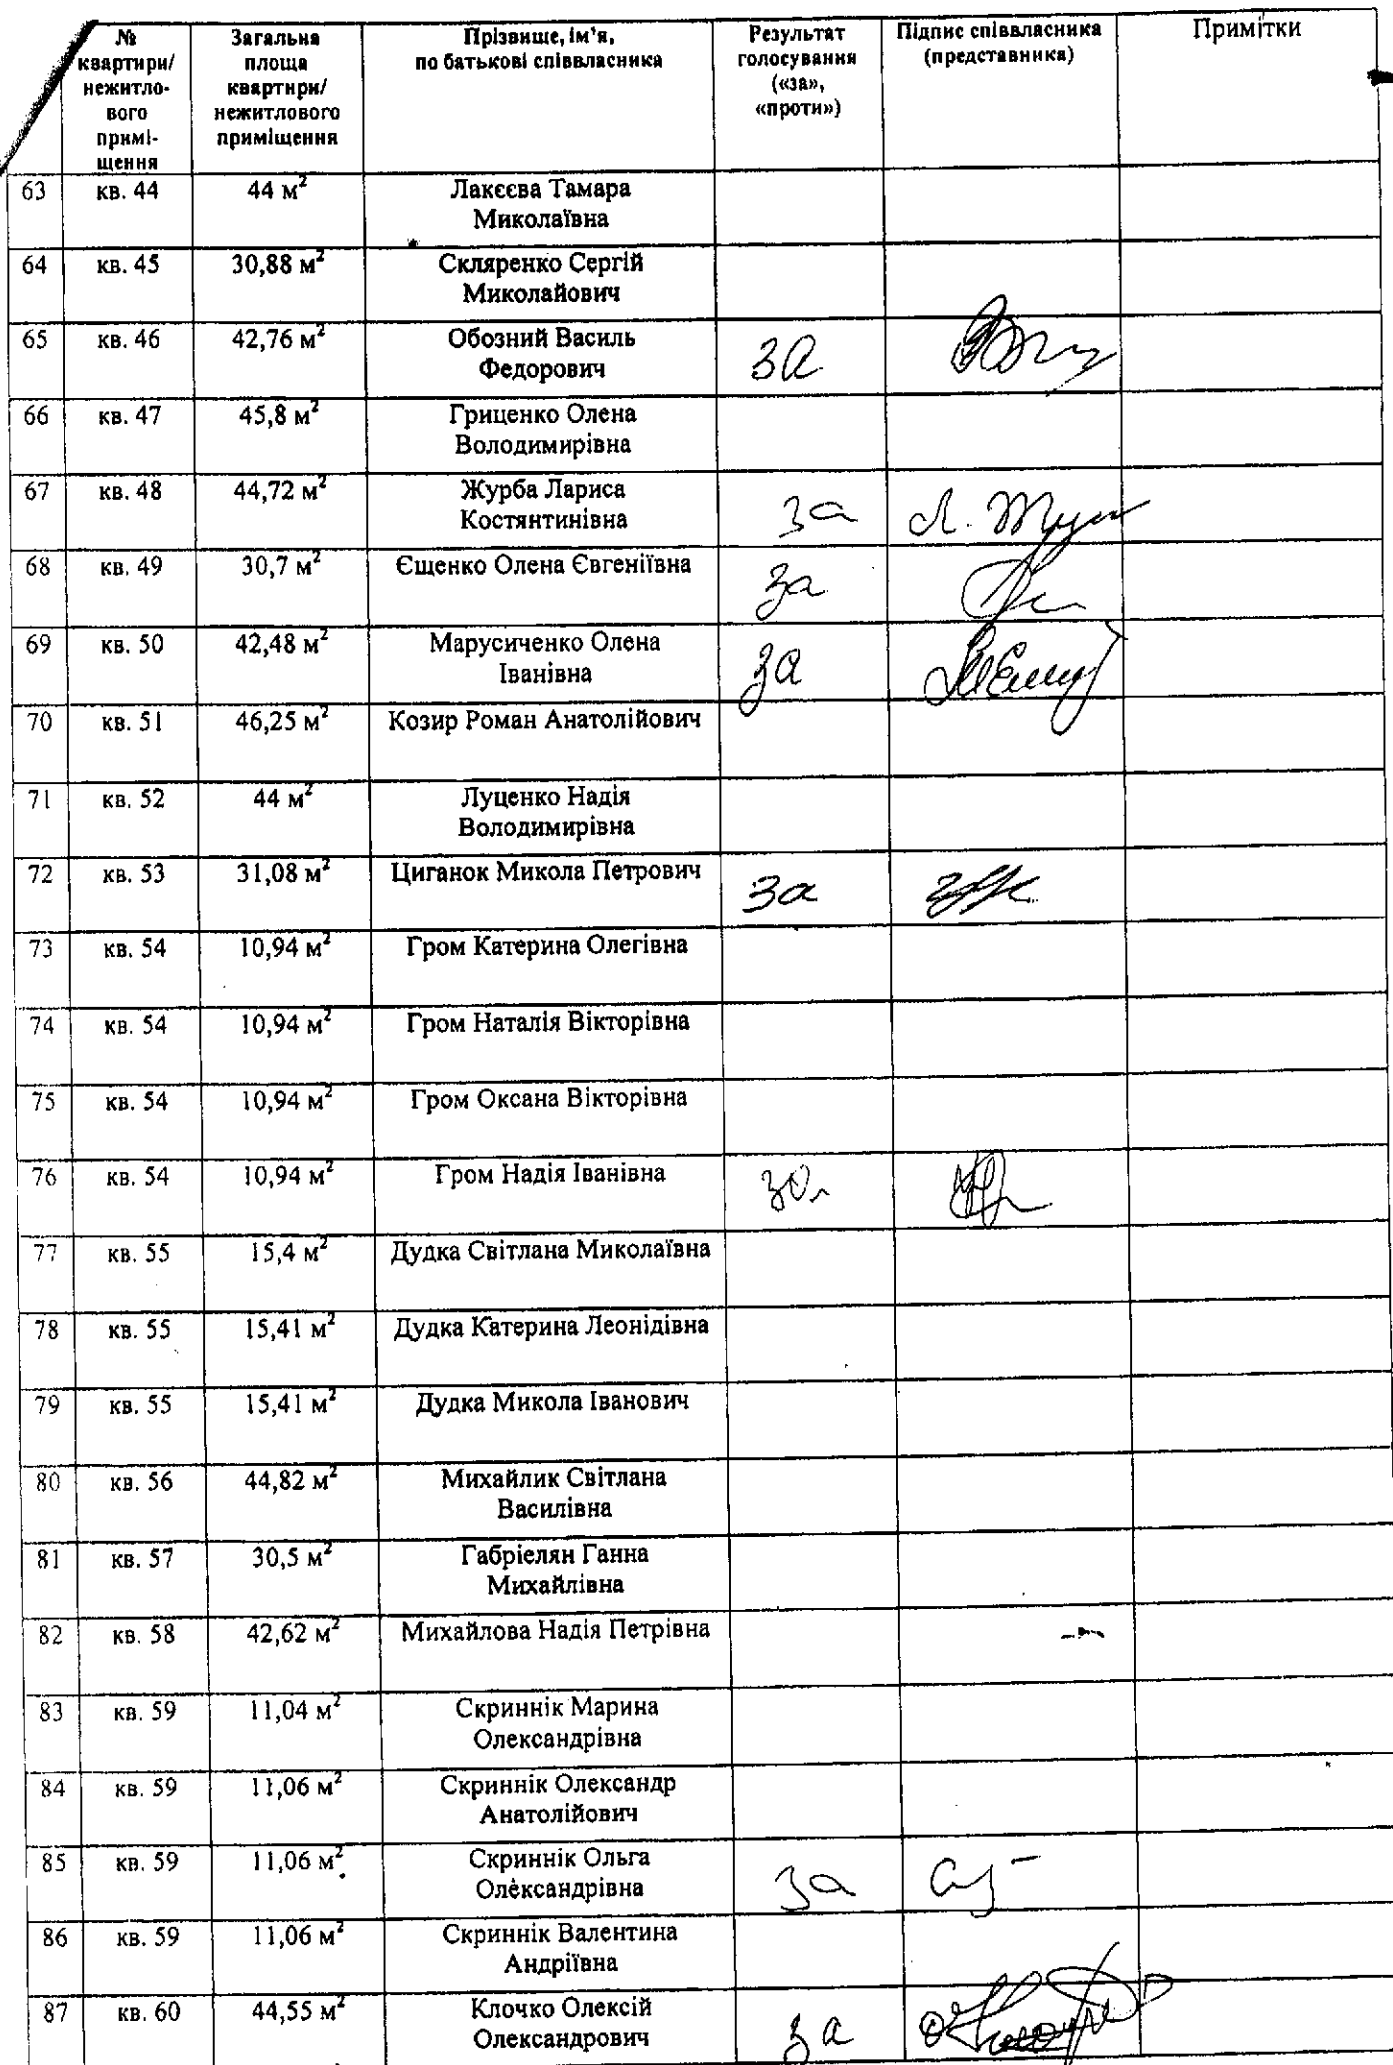 № квартири/ нежитло- вого примі- щення
Загальна площа квартири/ нежитлового приміщення
Прізвище, ім’я, по батькові співвласника
Результат голосування («за», «проти»)
Підпис співвласника (представника)
Примітки
63 кв. 44 44 м² Лакєєва Тамара
Миколаївна
64 кв. 45 30,88 м² Скляренко Сергій
Миколайович
65 кв. 46 42,76 м² Обозний Василь
Федорович за
66 кв. 47 45,8 м² Гриценко Олена
Володимирівна
67 кв. 48 44,72 м² Журба Лариса
Костянтинівна за
68 кв. 49 30,7 м² Єщенко Олена Євгеніївна
за
69 кв. 50 42,48 м² Марусиченко Олена
Іванівна за
70 кв. 51 46,25 м² Козир Роман Анатолійович
71 кв. 52 44 м² Луценко Надія
Володимирівна
72 кв. 53 31,08 м² Циганок Микола Петрович
за
73 кв. 54 10,94 м² Гром Катерина Олегівна
74 кв. 54 10,94 м² Гром Наталія Вікторівна
75 кв. 54 10,94 м² Гром Оксана Вікторівна
76 кв. 54 10,94 м² Гром Надія Іванівна за
77 кв. 55 15,4 м² Дудка Світлана Миколаївна
78 кв. 55 15,41 м² Дудка Катерина Леонідівна
79 кв. 55 15,41 м² Дудка Микола Іванович
80 кв. 56 44,82 м² Михайлик Світлана
Василівна
81 кв. 57 30,5 м² Габріелян Ганна
Михайлівна
82 кв. 58 42,62 м² Михайлова Надія Петрівна
83 кв. 59 11,04 м² Скриннік Марина
Олександрівна
84 кв. 59 11,06 м² Скриннік Олександр
Анатолійович
85 кв. 59 11,06 м² Скриннік Ольга
Олександрівна за
86 кв. 59 11,06 м² Скриннік Валентина
Андріївна
87 кв. 60 44,55 м² Клочко Олексій
Олександрович за